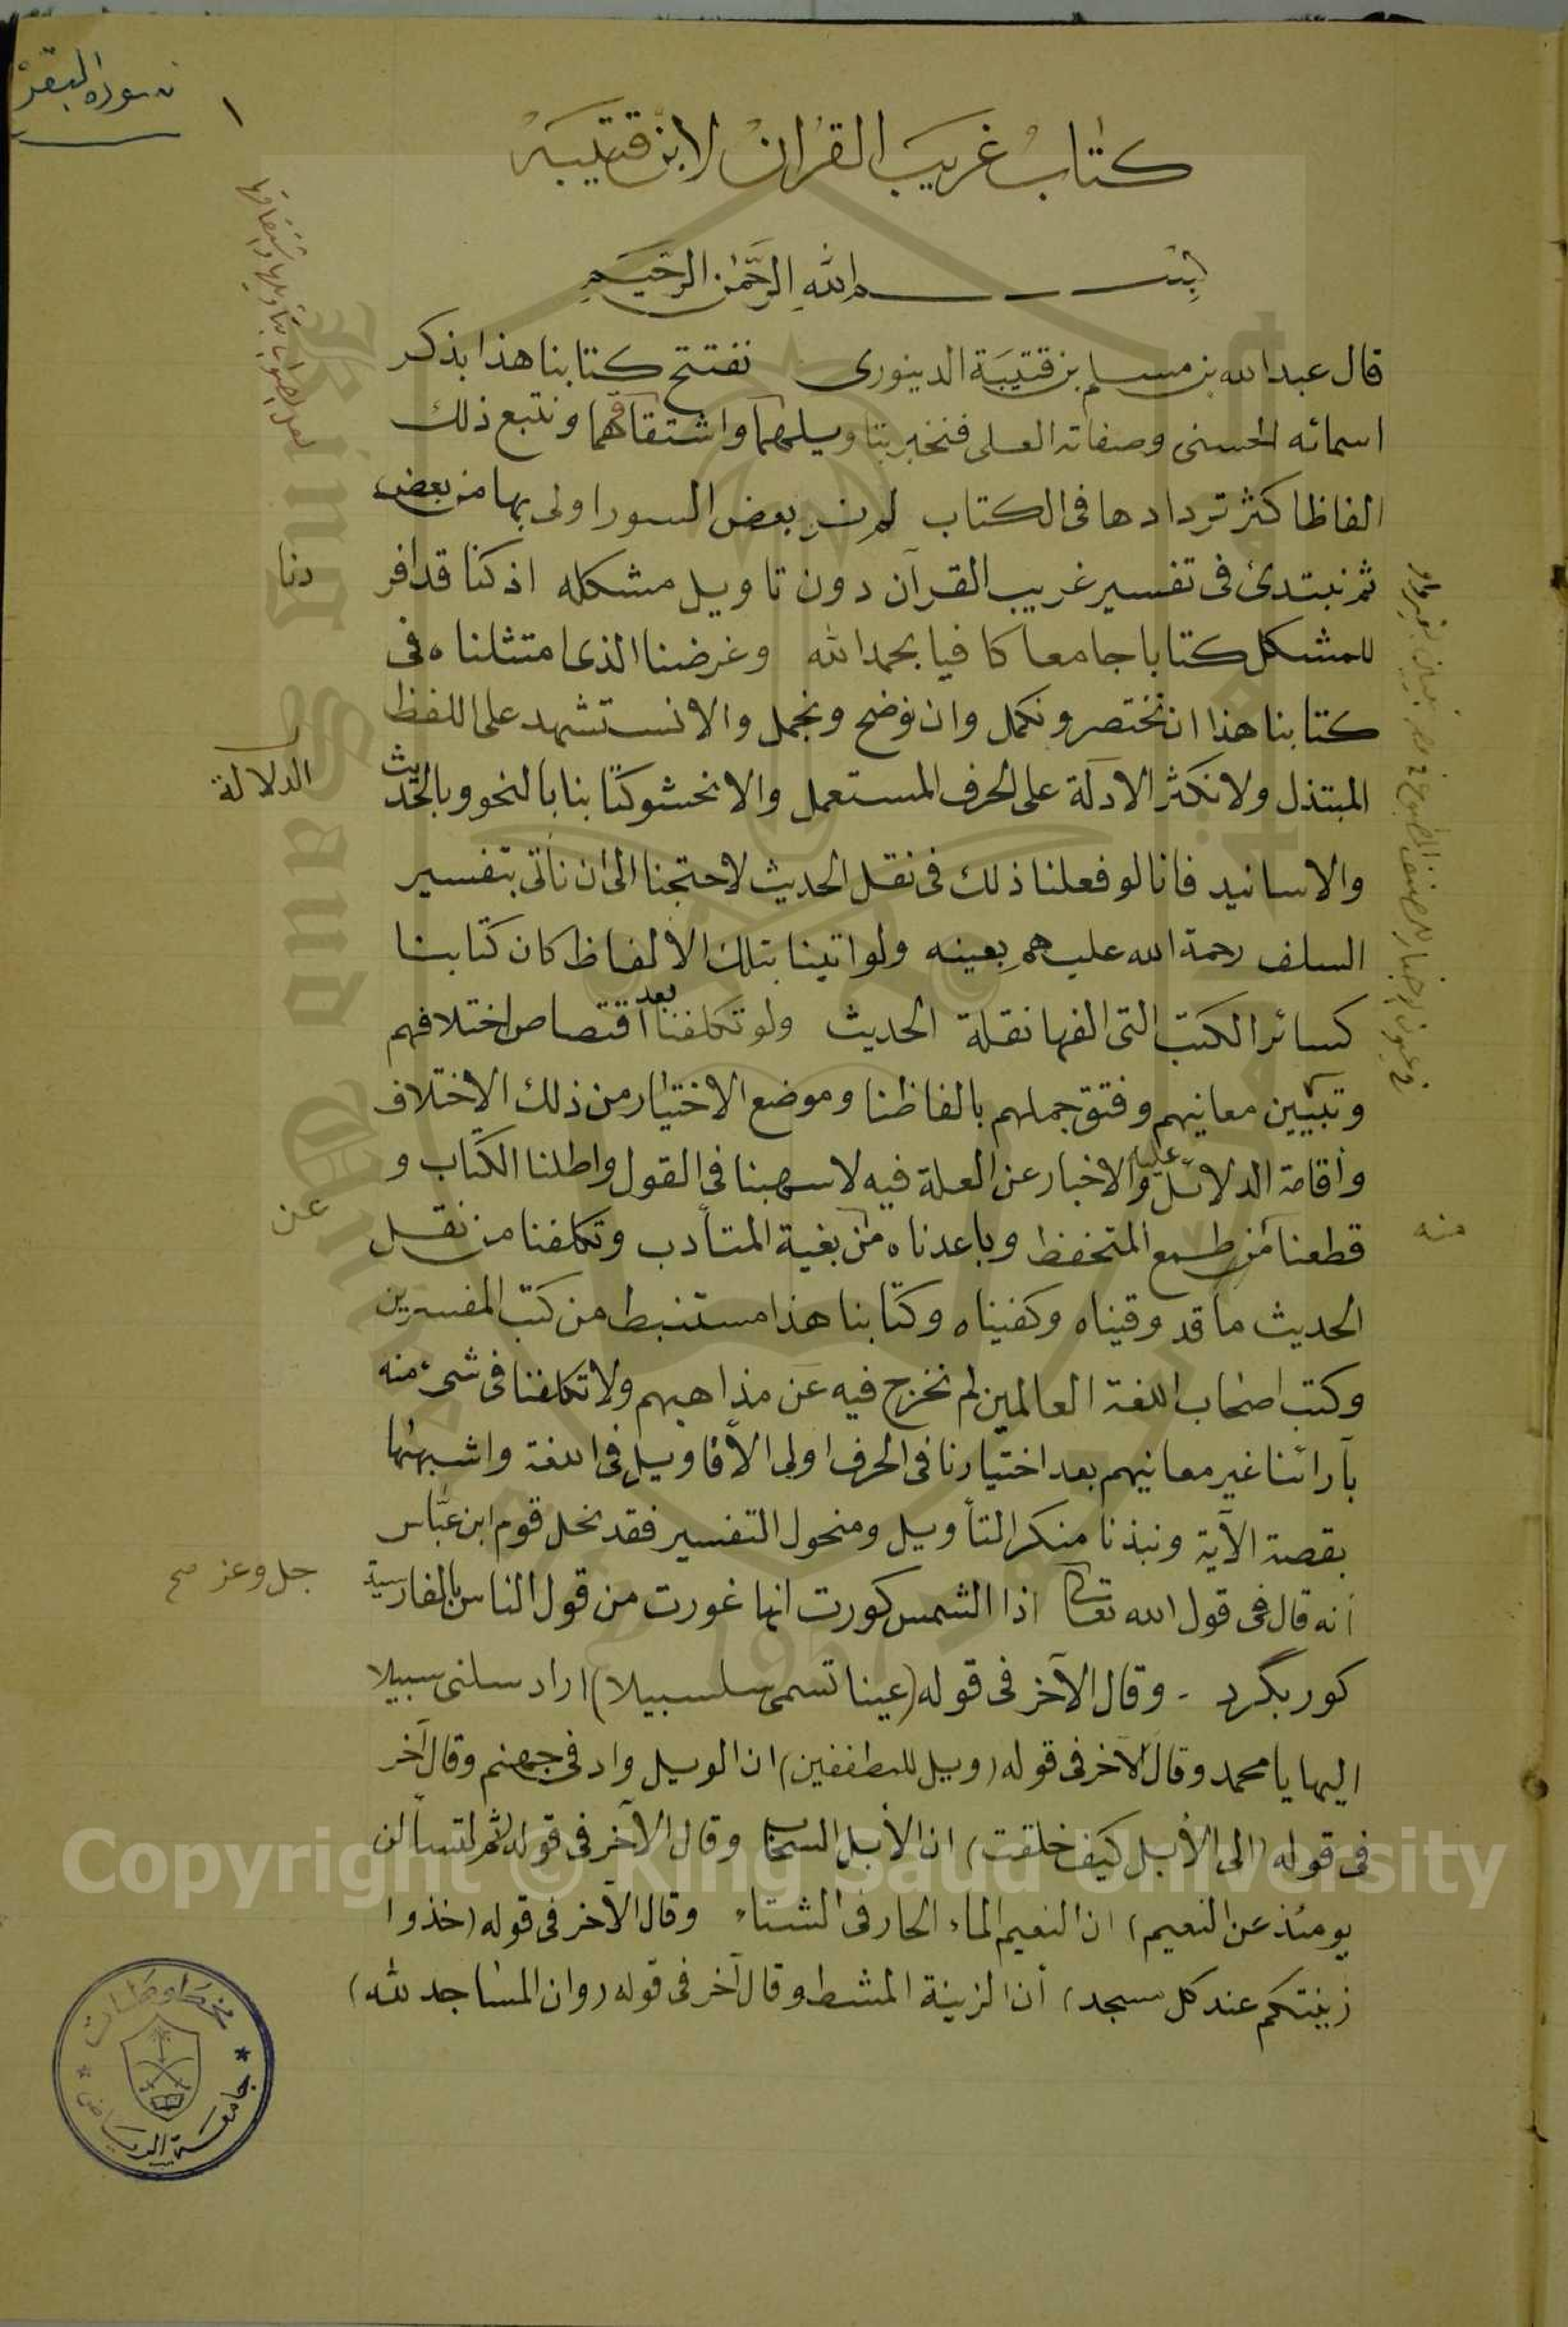 سورة البقرة
١
كتاب غريب القرآن لابن قتيبة
بسم الله الرحمن الرحيم
قال عبد الله بن مسلم بن قتيبة الدينورى نفتتح كتابنا هذا بذكر
اسمائه الحسنى وصفاته العلى فنخبر بتاويلهما واشتقاقهما ونتبع ذلك
الفاظا كثر تردادها فى الكتاب لم نر بعض السور اولى بها من بعض
ثم نبتدئ فى تفسير غريب القرآن دون تاويل مشكله اذ كنا قد افر
دنا
للمشكل كتابا جامعا كافيا بحمد الله وغرضنا الذى امتثلناه فى
كتابنا هذا ان نختصر ونكمل وان نوضح ونجمل والا نستشهد على اللفظ
المبتذل ولا نكثر الادلة على الحرف المستعمل والا نحشو كتابنا بالنحو وبالحديث
الدلالة
والاسانيد فانا لو فعلنا ذلك فى نقل الحديث لاحتجنا الى ان نأتى بتفسير
السلف رحمة الله عليهم بعينه ولو اتينا بتلك الالفاظ كان كتابنا
كسائر الكتب التى الفها نقلة الحديث ولو تكلفنا بعد اقتصاص اختلافهم
وتبيين معانيهم وفتق جملهم بالفاظنا وموضع الاختيار من ذلك الاختلاف
واقامة الدلائل عليه والاخبار عن العلة فيه لاسهبنا فى القول واطلنا الكتاب و
قطعنا من طمع المتحفظ وباعدناه من بغية المتأدب وتكلفنا من نقل
عن
منه
الحديث ما قد وقيناه وكفيناه وكتابنا هذا مستنبط من كتب المفسرين
وكتب اصحاب اللغة العالمين لم نخرج فيه عن مذاهبهم ولا تكلفنا فى شىء منه
بآرائنا غير معانيهم بعد اختيارنا فى الحرف اولى الأقاويل فى اللغة واشبهها
بقصة الآية ونبذنا منكر التأويل ومنحول التفسير فقد نحل قوم ابن عباس
أنه قال فى قول الله تعالى اذا الشمس كورت انها غورت من قول الناس بالفارسية
جل وعز صح
كور بگرد - وقال الآخر فى قوله (عينا تسمى سلسبيلا) اراد سلنى سبيلا
اليها يا محمد وقال الآخر فى قوله (ويل للمطففين) ان الويل واد فى جهنم وقال آخر
فى قوله (الى الأبل كيف خلقت) ان الأبل السحاب وقال الآخر فى قوله (ثم لتسألن
يومئذ عن النعيم) ان النعيم الماء الحار فى الشتاء وقال الآخر فى قوله (خذوا
زينتكم عند كل مسجد) أن الزينة المشط وقال آخر فى قوله (وان المساجد لله)
مخطوطات
جامعة الرياض
King Saud University
1957
Copyright © King Saud University